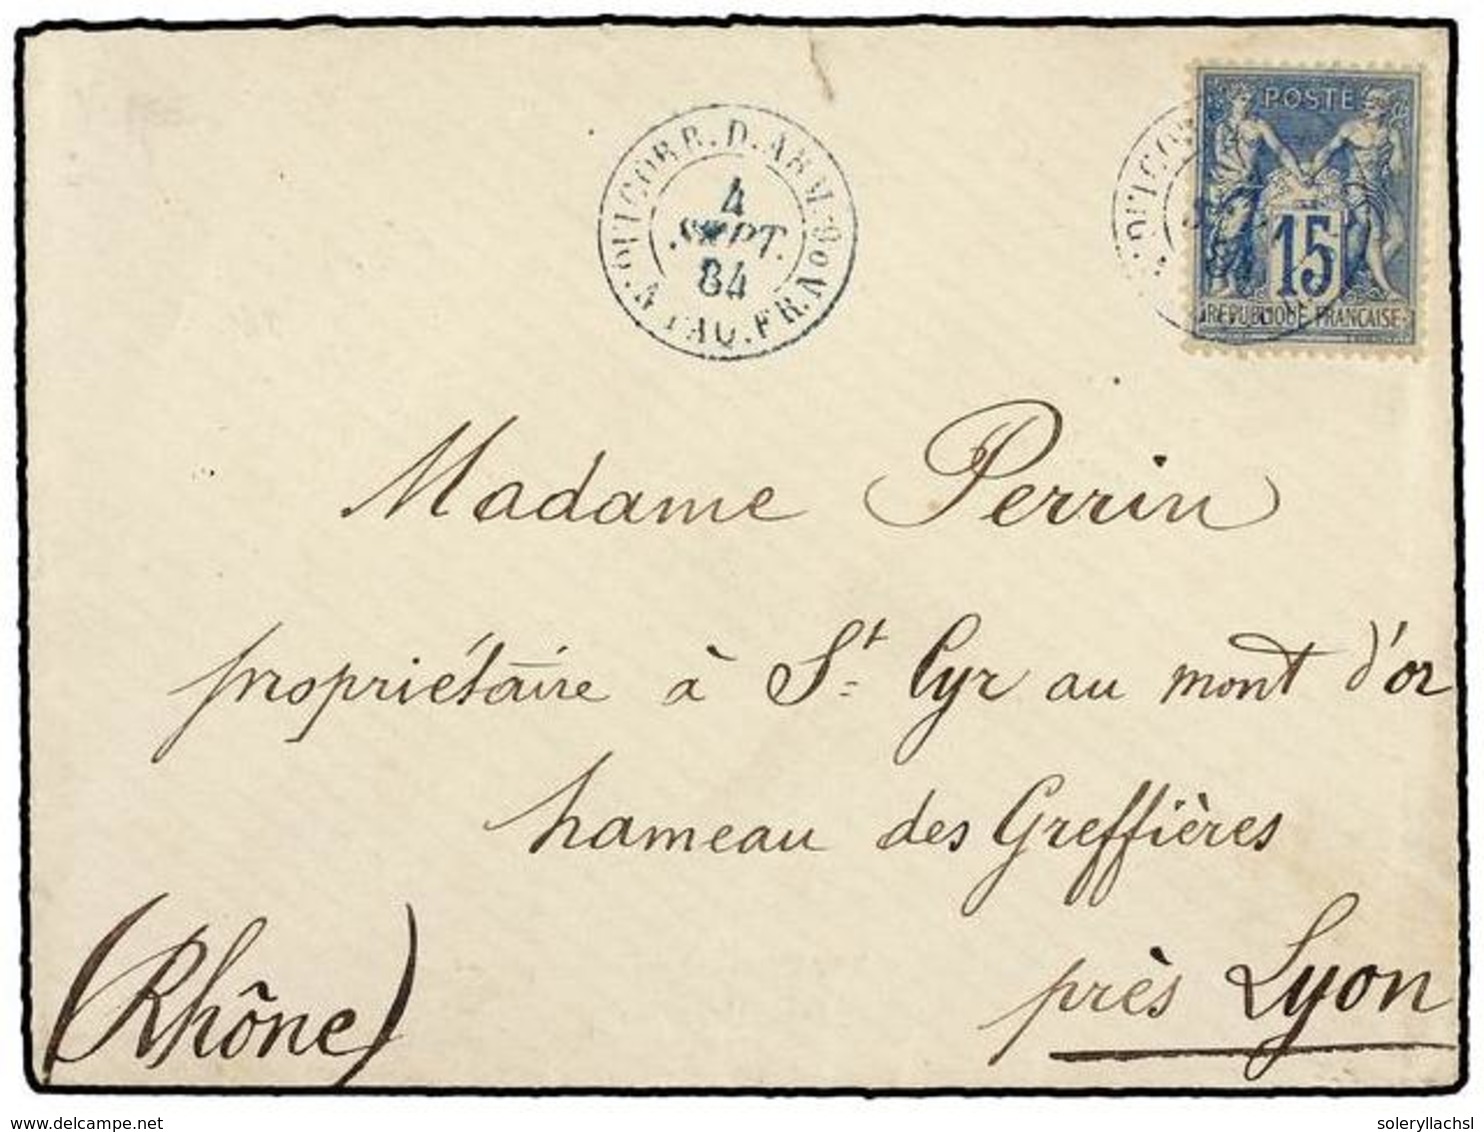 CORR. D. ARM.
4
SEPT.
84
PAQ. FR. No 9
POSTE
15
REPUBLIQUE FRANCAISE
Madame Perrin
propriétaire à St Cyr au mont d'or
hameau des Greffières
près Lyon
(Rhône)
delcampe.net
soleryllachsl